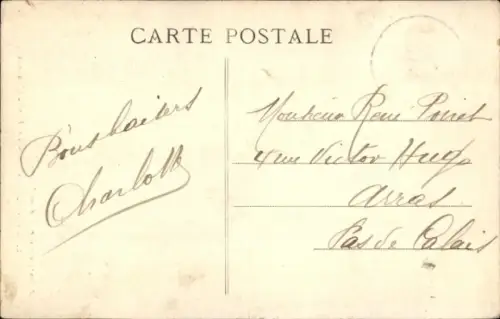 CARTE POSTALE
Bons baisers
Charlotte
Monsieur René
rue Victor Hugo
Arras
Pas de Calais